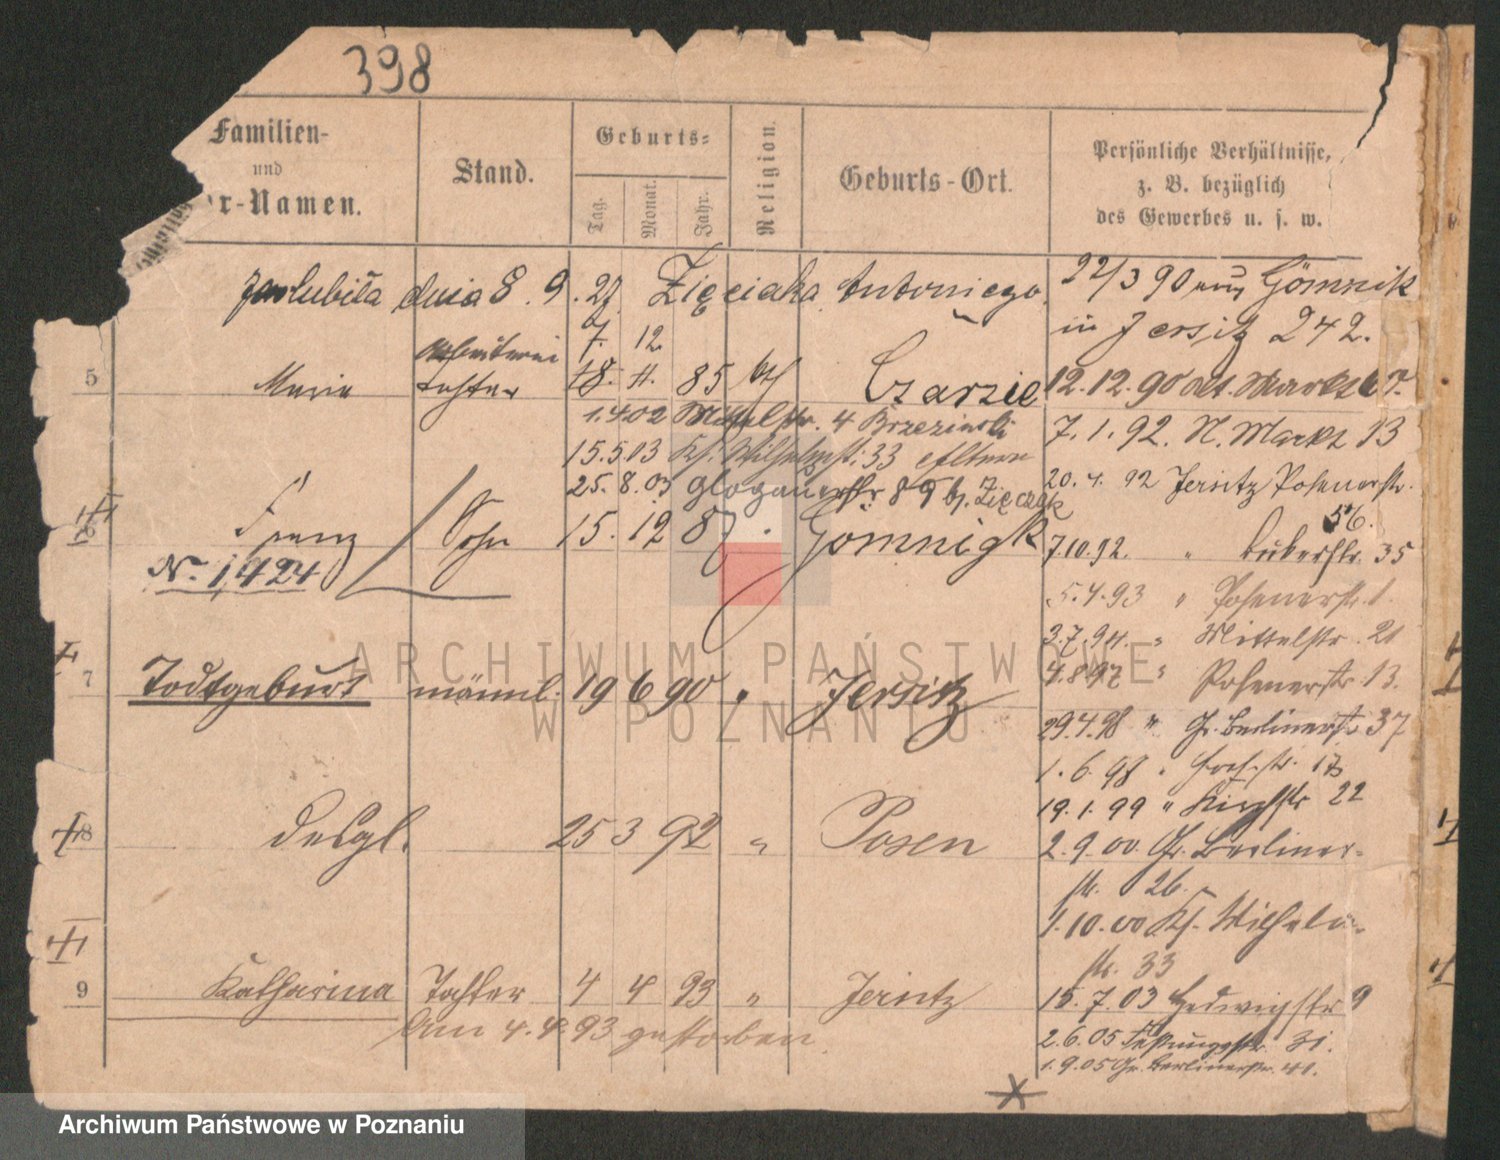 398
Familien-
und
r-Namen.
Stand.
Geburts-
Tag.
Monat.
Jahr.
Religion.
Geburts-Ort.
Persönliche Verhältnisse,
z. B. bezüglich
des Gewerbes u. s. w.
zaslubiła dnia 8. 9. 27 Zięciaka Antoniego
22/3 90 aus Gómnik
in Jersitz 242.
7. 12.
5 Maria Arbeiterin Tochter 18. 11. 85 kth Czarzie
12.12.90 Alt. Markt 67.
1.4.02 4 Brzezinski
7.1.92. N. Markt 13
15.5.03 Ks. Wilhelmstr. 33 Eltern
25.8.03 Glogauerstr 89 b. Zięczak
20.4.92 Jersitz Posenerstr.
56.
6 Franz Sohn 15. 12 87 Gómnigk
No 1,424
7.10.92. " 35
5.4.93 " Posenerstr. 1.
3.7.94. " Mittelstr. 21
4.8.97 " Posenerstr. 13.
7 Todtgeburt männl. 19 6 90 " Jersitz
29.4.98 " Gr. Berlinerstr 37
1.6.98 " Hochstr. 17
19.1.99 " Kirchstr 22
8 desgl. 25 3 92 " Posen
2.9.00. Gr. Berliner-
str. 26.
1.10.00 Ks. Wilhelm-
str. 33
9 Katharina Tochter 4 4 93 " Jersitz
15.7.03 Hedwigstr 9
Am 4.4.93 gestorben.
2.6.05 Festungsstr. 31.
1.9.05 Gr. Berlinerstr. 41.
ARCHIWUM PAŃSTWOWE
W POZNANIU
Archiwum Państwowe w Poznaniu